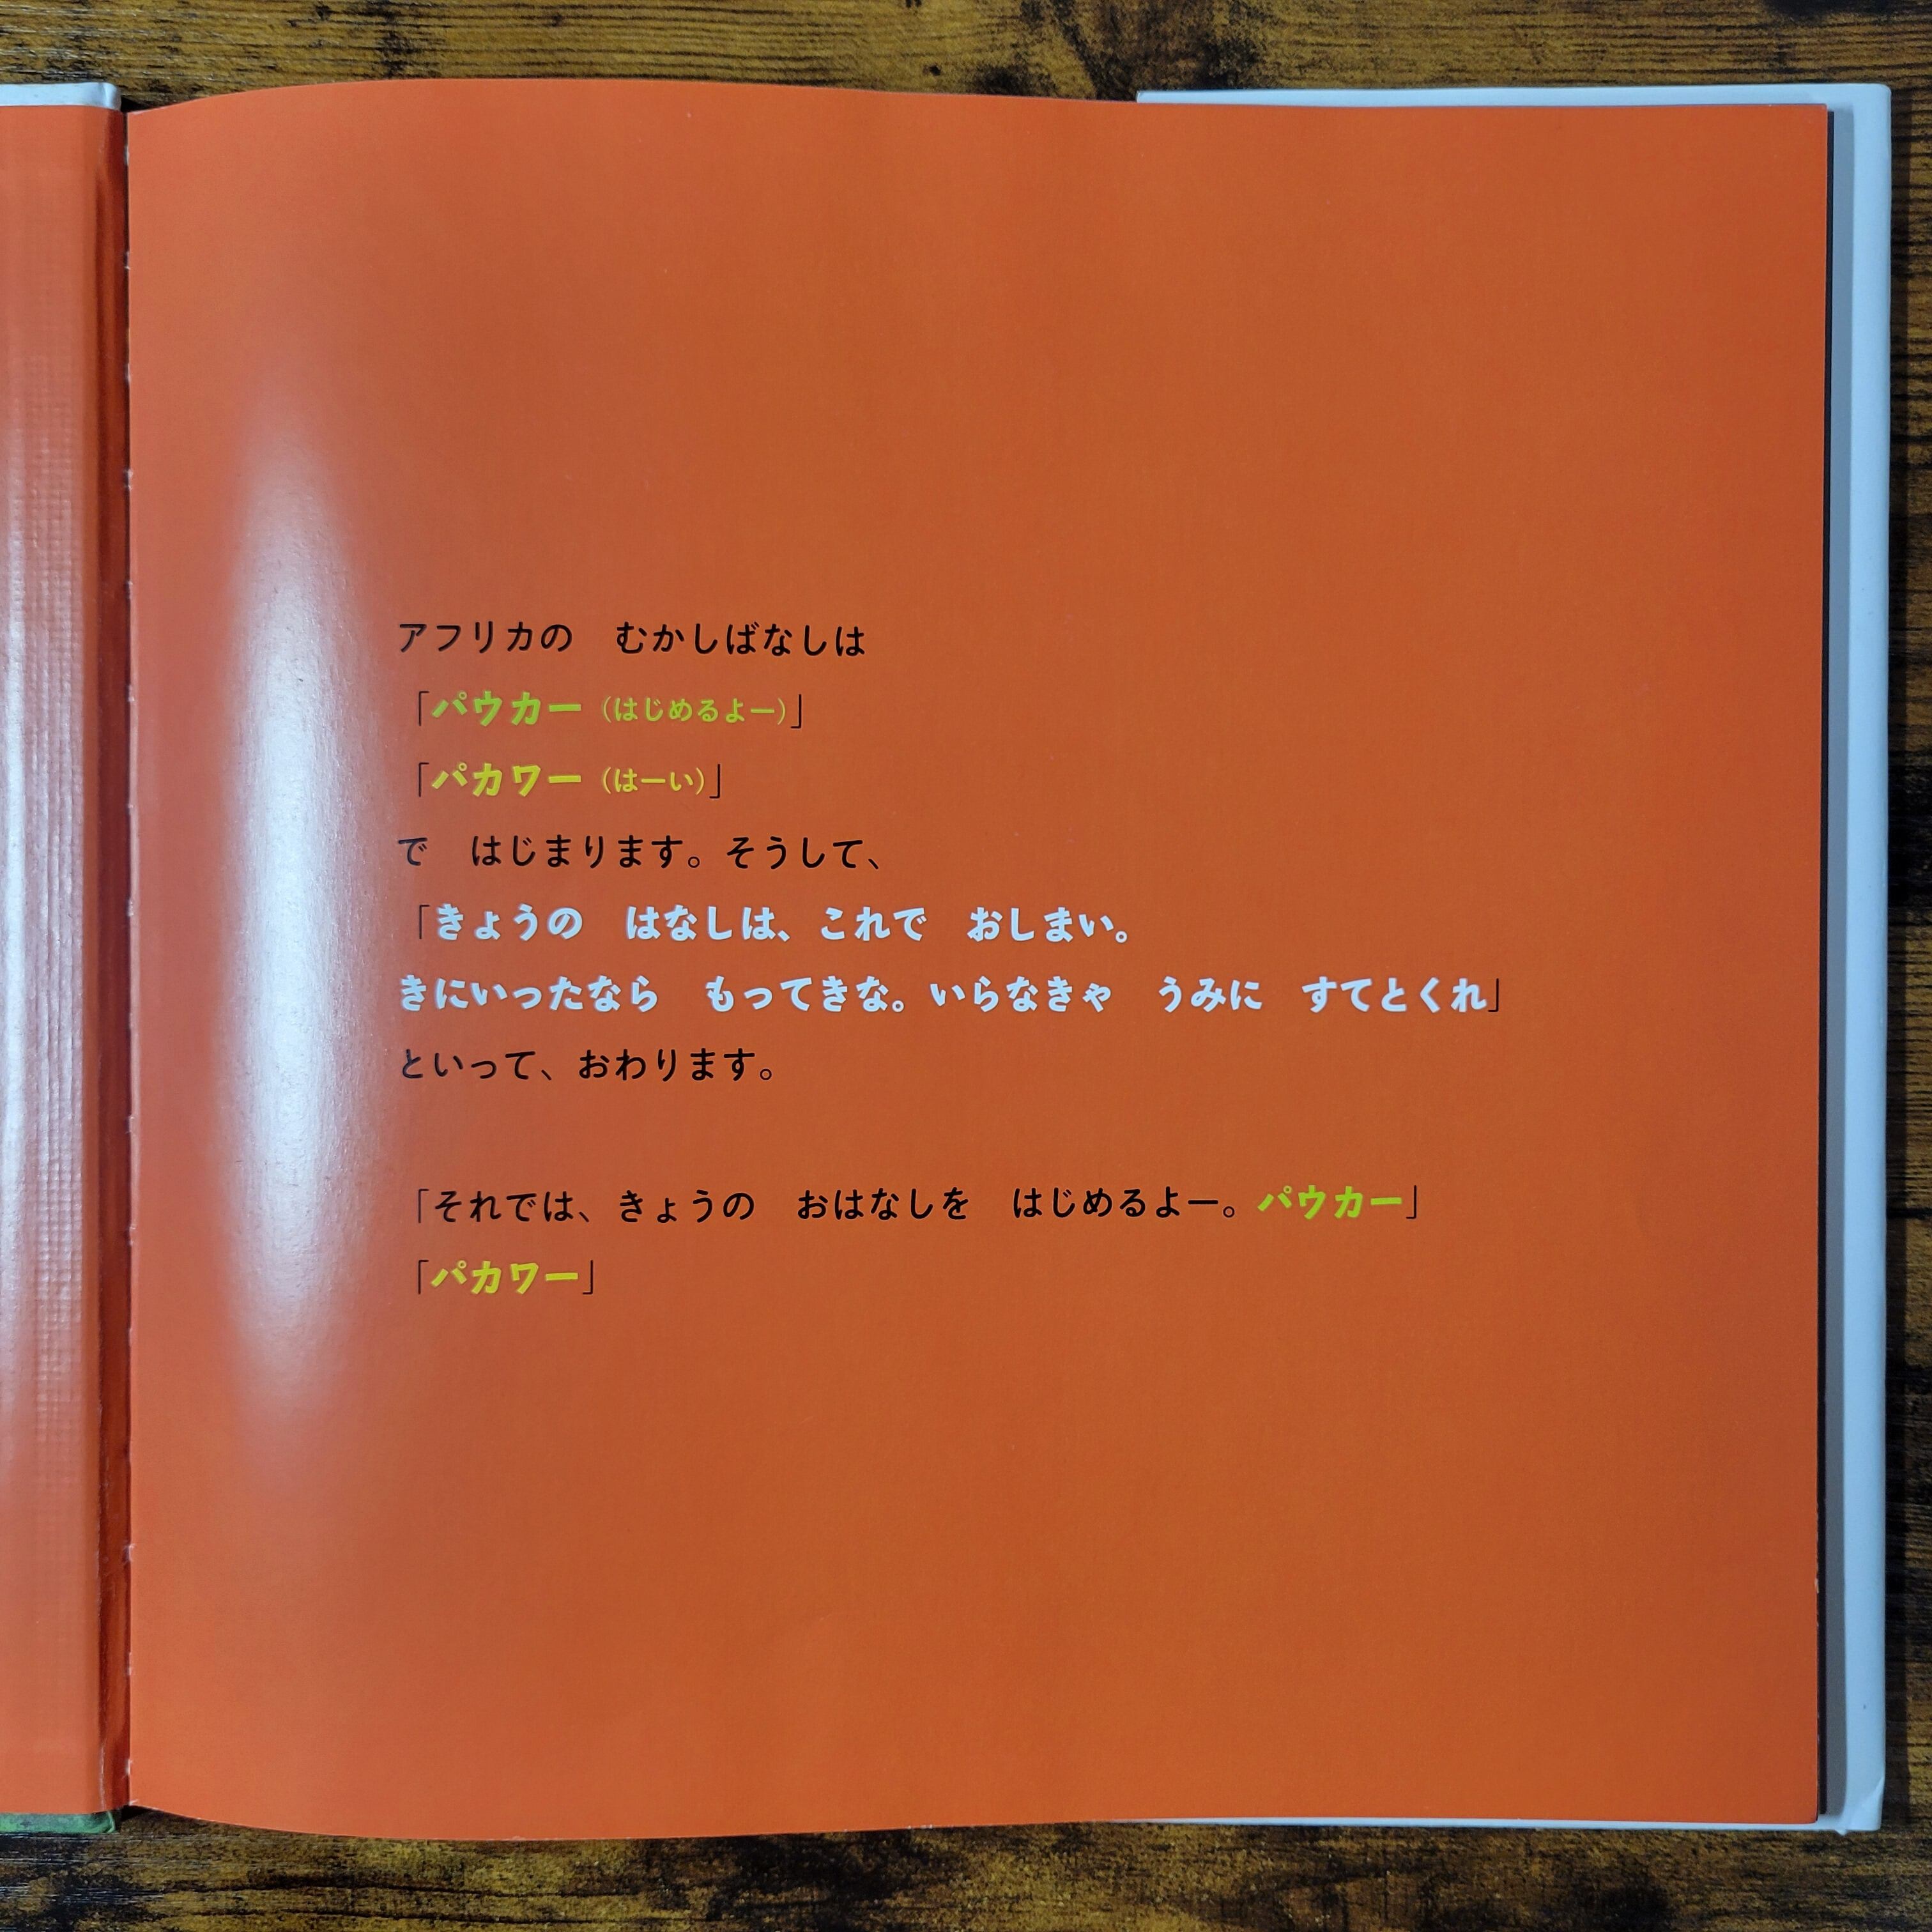 アフリカの　むかしばなしは
「パウカー（はじめるよー）」
「パカワー（はーい）」
で　はじまります。そうして、
「きょうの　はなしは、これで　おしまい。
きにいったなら　もってきな。いらなきゃ　うみに　すてとくれ」
といって、おわります。
「それでは、きょうの　おはなしを　はじめるよー。パウカー」
「パカワー」